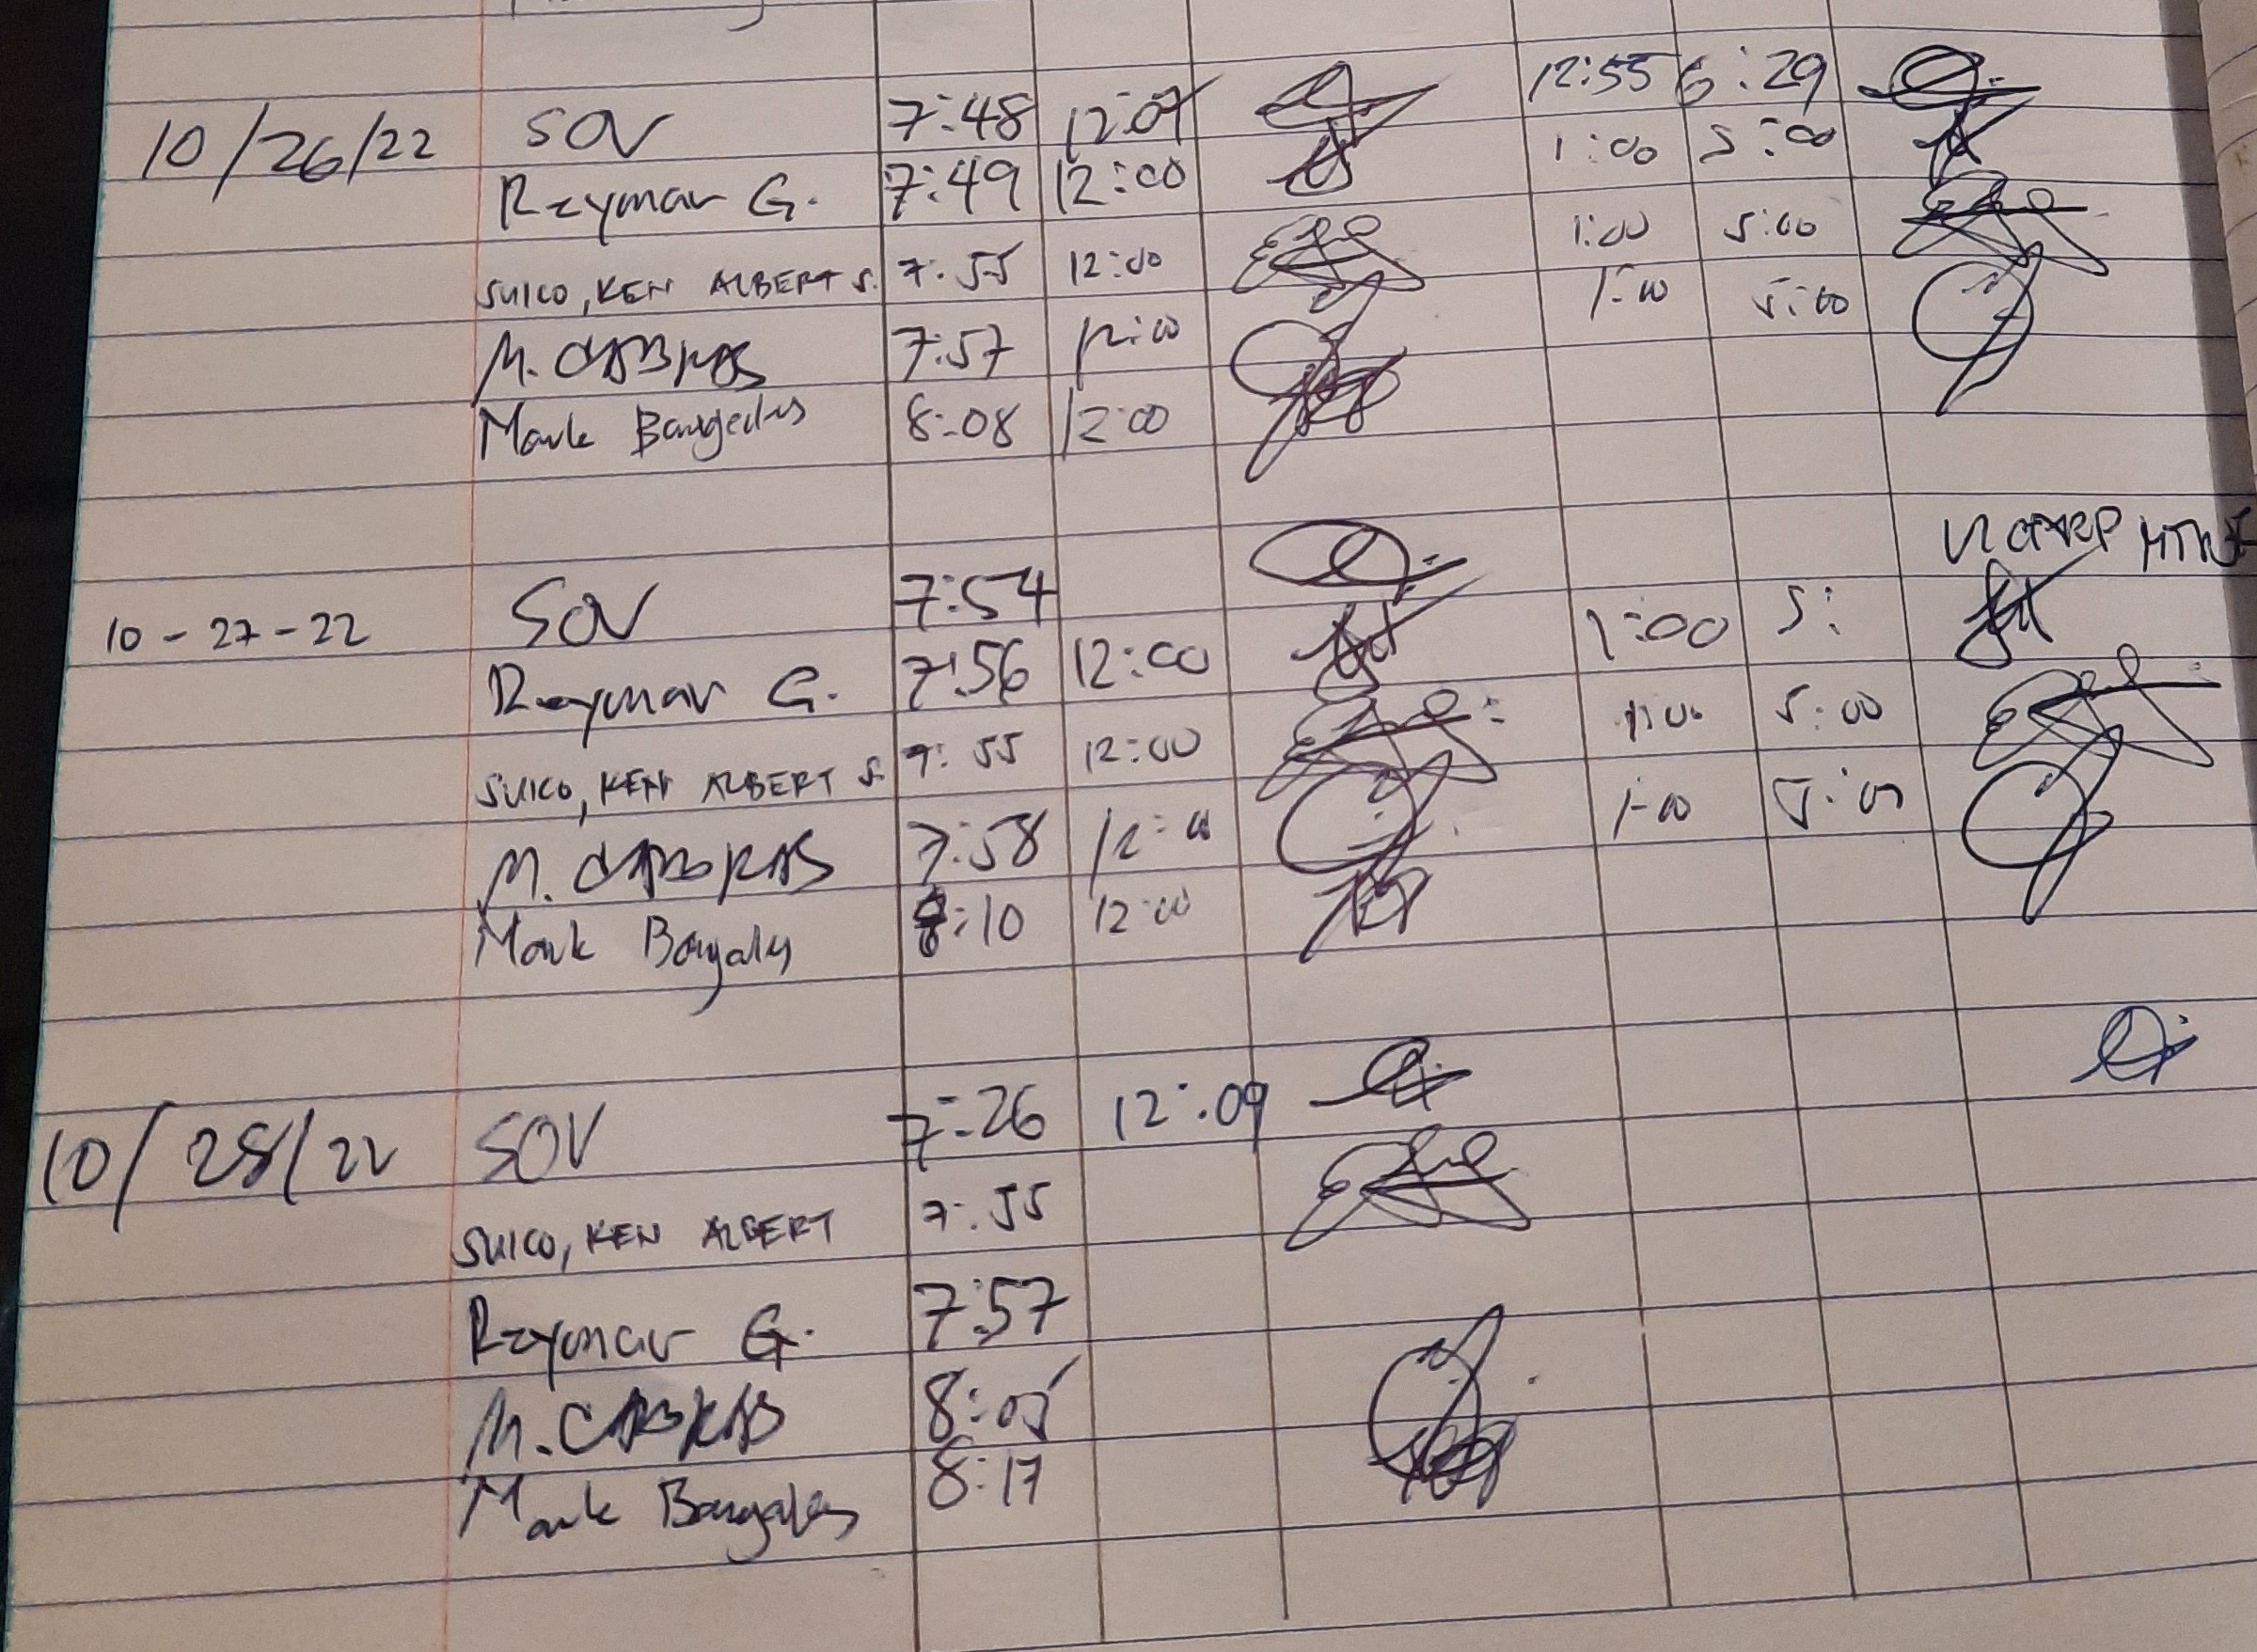 10/26/22 SOV 7:48 12:07 12:55 6:29
Reymar G. 7:49 12:00 1:00 5:00
SUICO, KEN ALBERT S. 7:55 12:00 1:00 5:00
M. CABRAS 7:57 12:00 1:00 5:00
Mark 8:08 12:00
10-27-22 SOV 7:54
Reymar G. 7:56 12:00 1:00 5:
SUICO, KEN ALBERT S. 7:55 12:00 1:00 5:00
M. CABRAS 7:58 12:00 1:00 5:00
Mark 8:10 12:00
10/28/22 SOV 7:26 12:09
SUICO, KEN ALBERT 7:55
Reymar G. 7:57
M. CABRAS 8:05
Mark 8:17